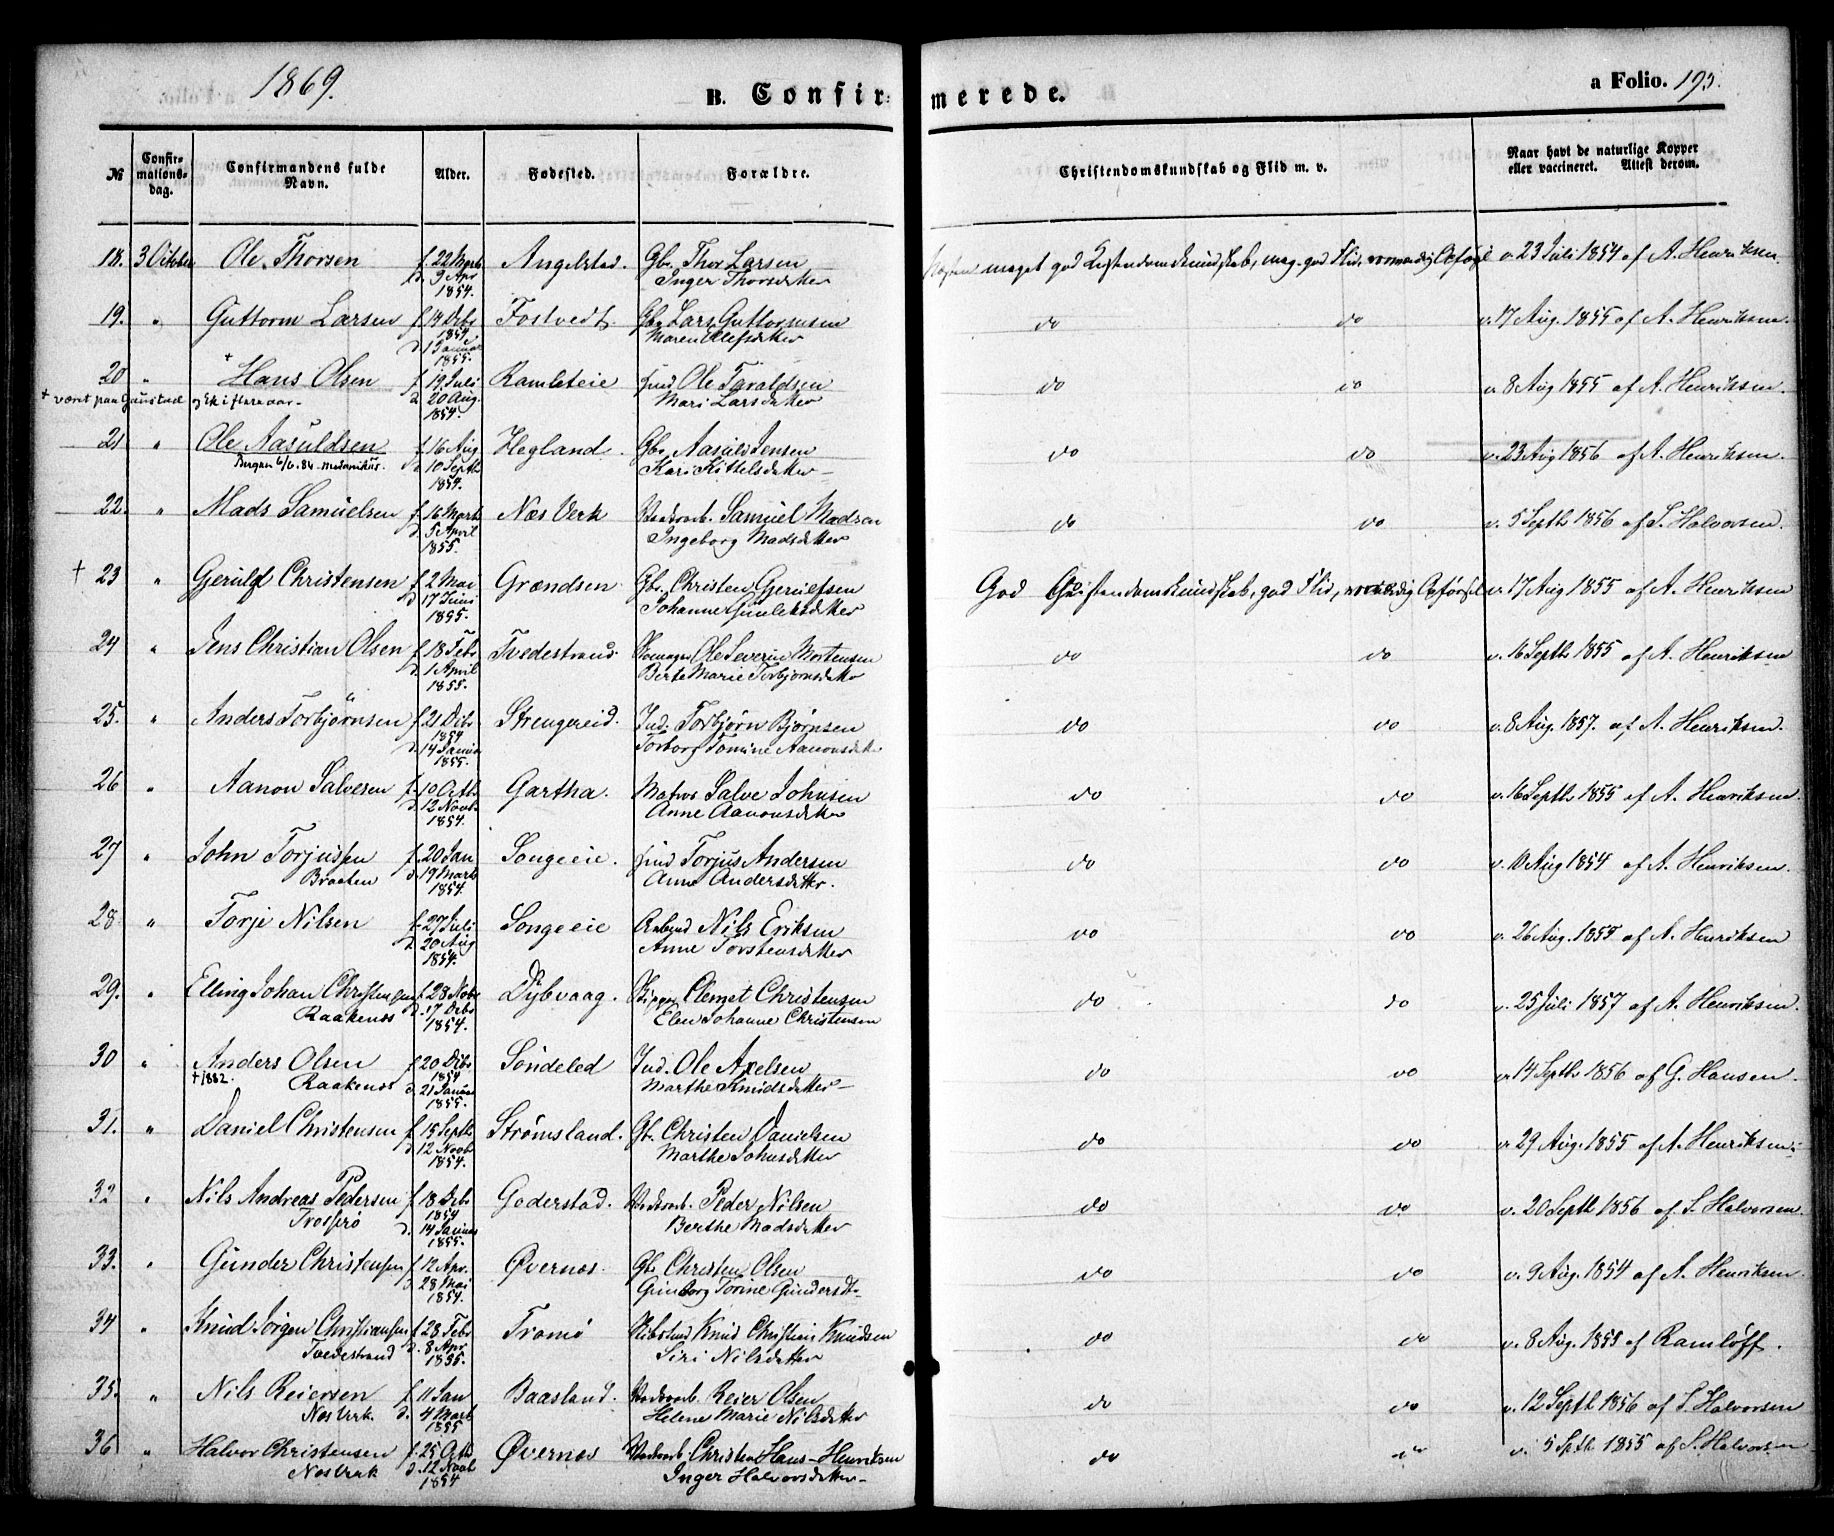 1869.
B. Confirmerede.
a Folio. 193.
№
Confirmationsdag.
Confirmandens fulde Navn.
Alder.
Fødested.
Forældre.
Christendomskundskab og Flid m. v.
Naar havt de naturlige Kopper eller vaccineret. Attest derom.
18. 3 Octobr Ole Thorsen f. 22 Marts d. 9 Apr 1854. Angelstad. Gbr. Thor Larsen Inger Thorsdatter meget god Kristendomskundskab, meg. god Flid, Opførsel v. 23 Juli 1854 af A. Henriksen
19. " Guttorm Larsen f. 14 Debr 1854 d. 1 Januar 1855. Fostvedt Gbr. Lars Guttormsen Maren Olefsdatter do do v. 17 Aug. 1855 af A. Henriksen.
20 " + Hans Olsen f. 19 Juli d. 20 Aug. 1854. Ramleteie Ole Taraldsen Mari Larsdatter do do v. 8 Aug 1855 af A. Henriksen.
+ været paa Gaustad og
21 " Ole Aasuldsen f. 16 Aug d. 10 Septb 1854. Hegland. Gbr. Aasuld Jensen Kari Kittelsdatter do do v. 23 Aug 1856 af A. Henriksen.
Bergen 6/6. 84. Mechanikus.
22. " Mads Samuelsen f. 16 Marts d. 5 April 1855. Næs Verk Samuel Madsen Ingeborg Madsdatter do do v. 5 Septb 1856 af S. Halvorsen.
+ 23 " Gerulf Christensen f. 2 Mai d. 17 Juni 1855. Grændsen Gbr. Christen Gerulfsen Johanne Gunleksdatter God Christendomskundskab, god Flid, Opførsel v. 17 Aug 1855 af A. Henriksen
24 " Jens Christian Olsen f. 18 Febr d. 1 April 1855. Tvedestrand. Ole Severin Mortensen Berte Marie Torbjørnsdatter do do v. 16 Septb 1855 af A. Henriksen
25. " Anders Torbjørnsen f. 21 Debr 1854 d. 14 Januar 1855. Strengereid. Ind. Torbjørn Bjørnsen Torborg Tomine Aanonsdatter do do v. 8 Aug. 1857. af A. Henriksen.
26 " Aanon Salvesen f. 10 Octb d. 12 Novb 1854. Gartha. Matros Salve Johnsen Anne Aanonsdatter do do v. 16 Septb 1855 af A. Henriksen.
27 " John Torjussen Braaten f. 20 Jan d. 19 Marts 1854. Songeeie. Torjus Andersen Anne Andersdatter. do do v. 10 Aug 1854 af A. Henriksen.
28 " Torje Nilsen f. 27 Juli d. 20 Aug 1854. Songeeie Nils Eriksen Anne Torstensdatter do do v. 26 Aug. 1855 af A. Henriksen
29. " Elling Johan Christensen Raakenæs f. 28 Nobr d. 17 Debr 1854. Dybvaag. Skipper Clemet Christensen Elen Johanne Christensen do do v. 25 Juli 1857 af A. Henriksen
30 " Anders Olsen Raakenæs f. 20 Debr 1854 d. 21 Januar 1855. Søndeled Ind. Ole Axelsen Marthe Knudsdatter do do v. 14 Septb 1856 af G. Hansen.
+ 1882.
31. " Daniel Christensen f. 15 Septb d. 12 Novb 1854. Strømsland. Gb. Christen Danielsen Marthe Johnsdatter do do v. 29 Aug. 1855 af A. Henriksen.
32 " Nils Andreas Pedersen f. 18 Debr 1854 d. 14 Januar 1855. Goderstad. Peder Nilsen Berthe Madsdatter do do v. 20 Septb 1856 af S. Halvorsen.
33. " Gunder Christensen f. 12 Apr. d. 28 Mai 1854. Øvernæs. Gb. Christen Olsen Gunborg Torine Gundersdt. do do v. 9 Aug. 1854 af A. Henriksen.
34 " Knud Jørgen Christiansen Tvedestrand f. 28 Febr d. 8 Apr. 1855. Tromø Knud Christian Knudsen Siri Nilsdatter do do v. 8 Aug. 1855 af Ramløff.
35. " Nils Reiersen Næs Verk. f. 11 Jan d. 4 Marts 1855 Baasland. Reier Olsen Helene Marie Nilsdatter do do v. 12 Septb 1856 af S. Halvorsen
36 " Halvor Christensen Næs Verk f. 25 Octb d. 12 Novb 1854 Øvernæs Christen Hans-Henriksen Inger Halvorsdatter do do v. 5 Sptb 1855 af S. Halvorsen